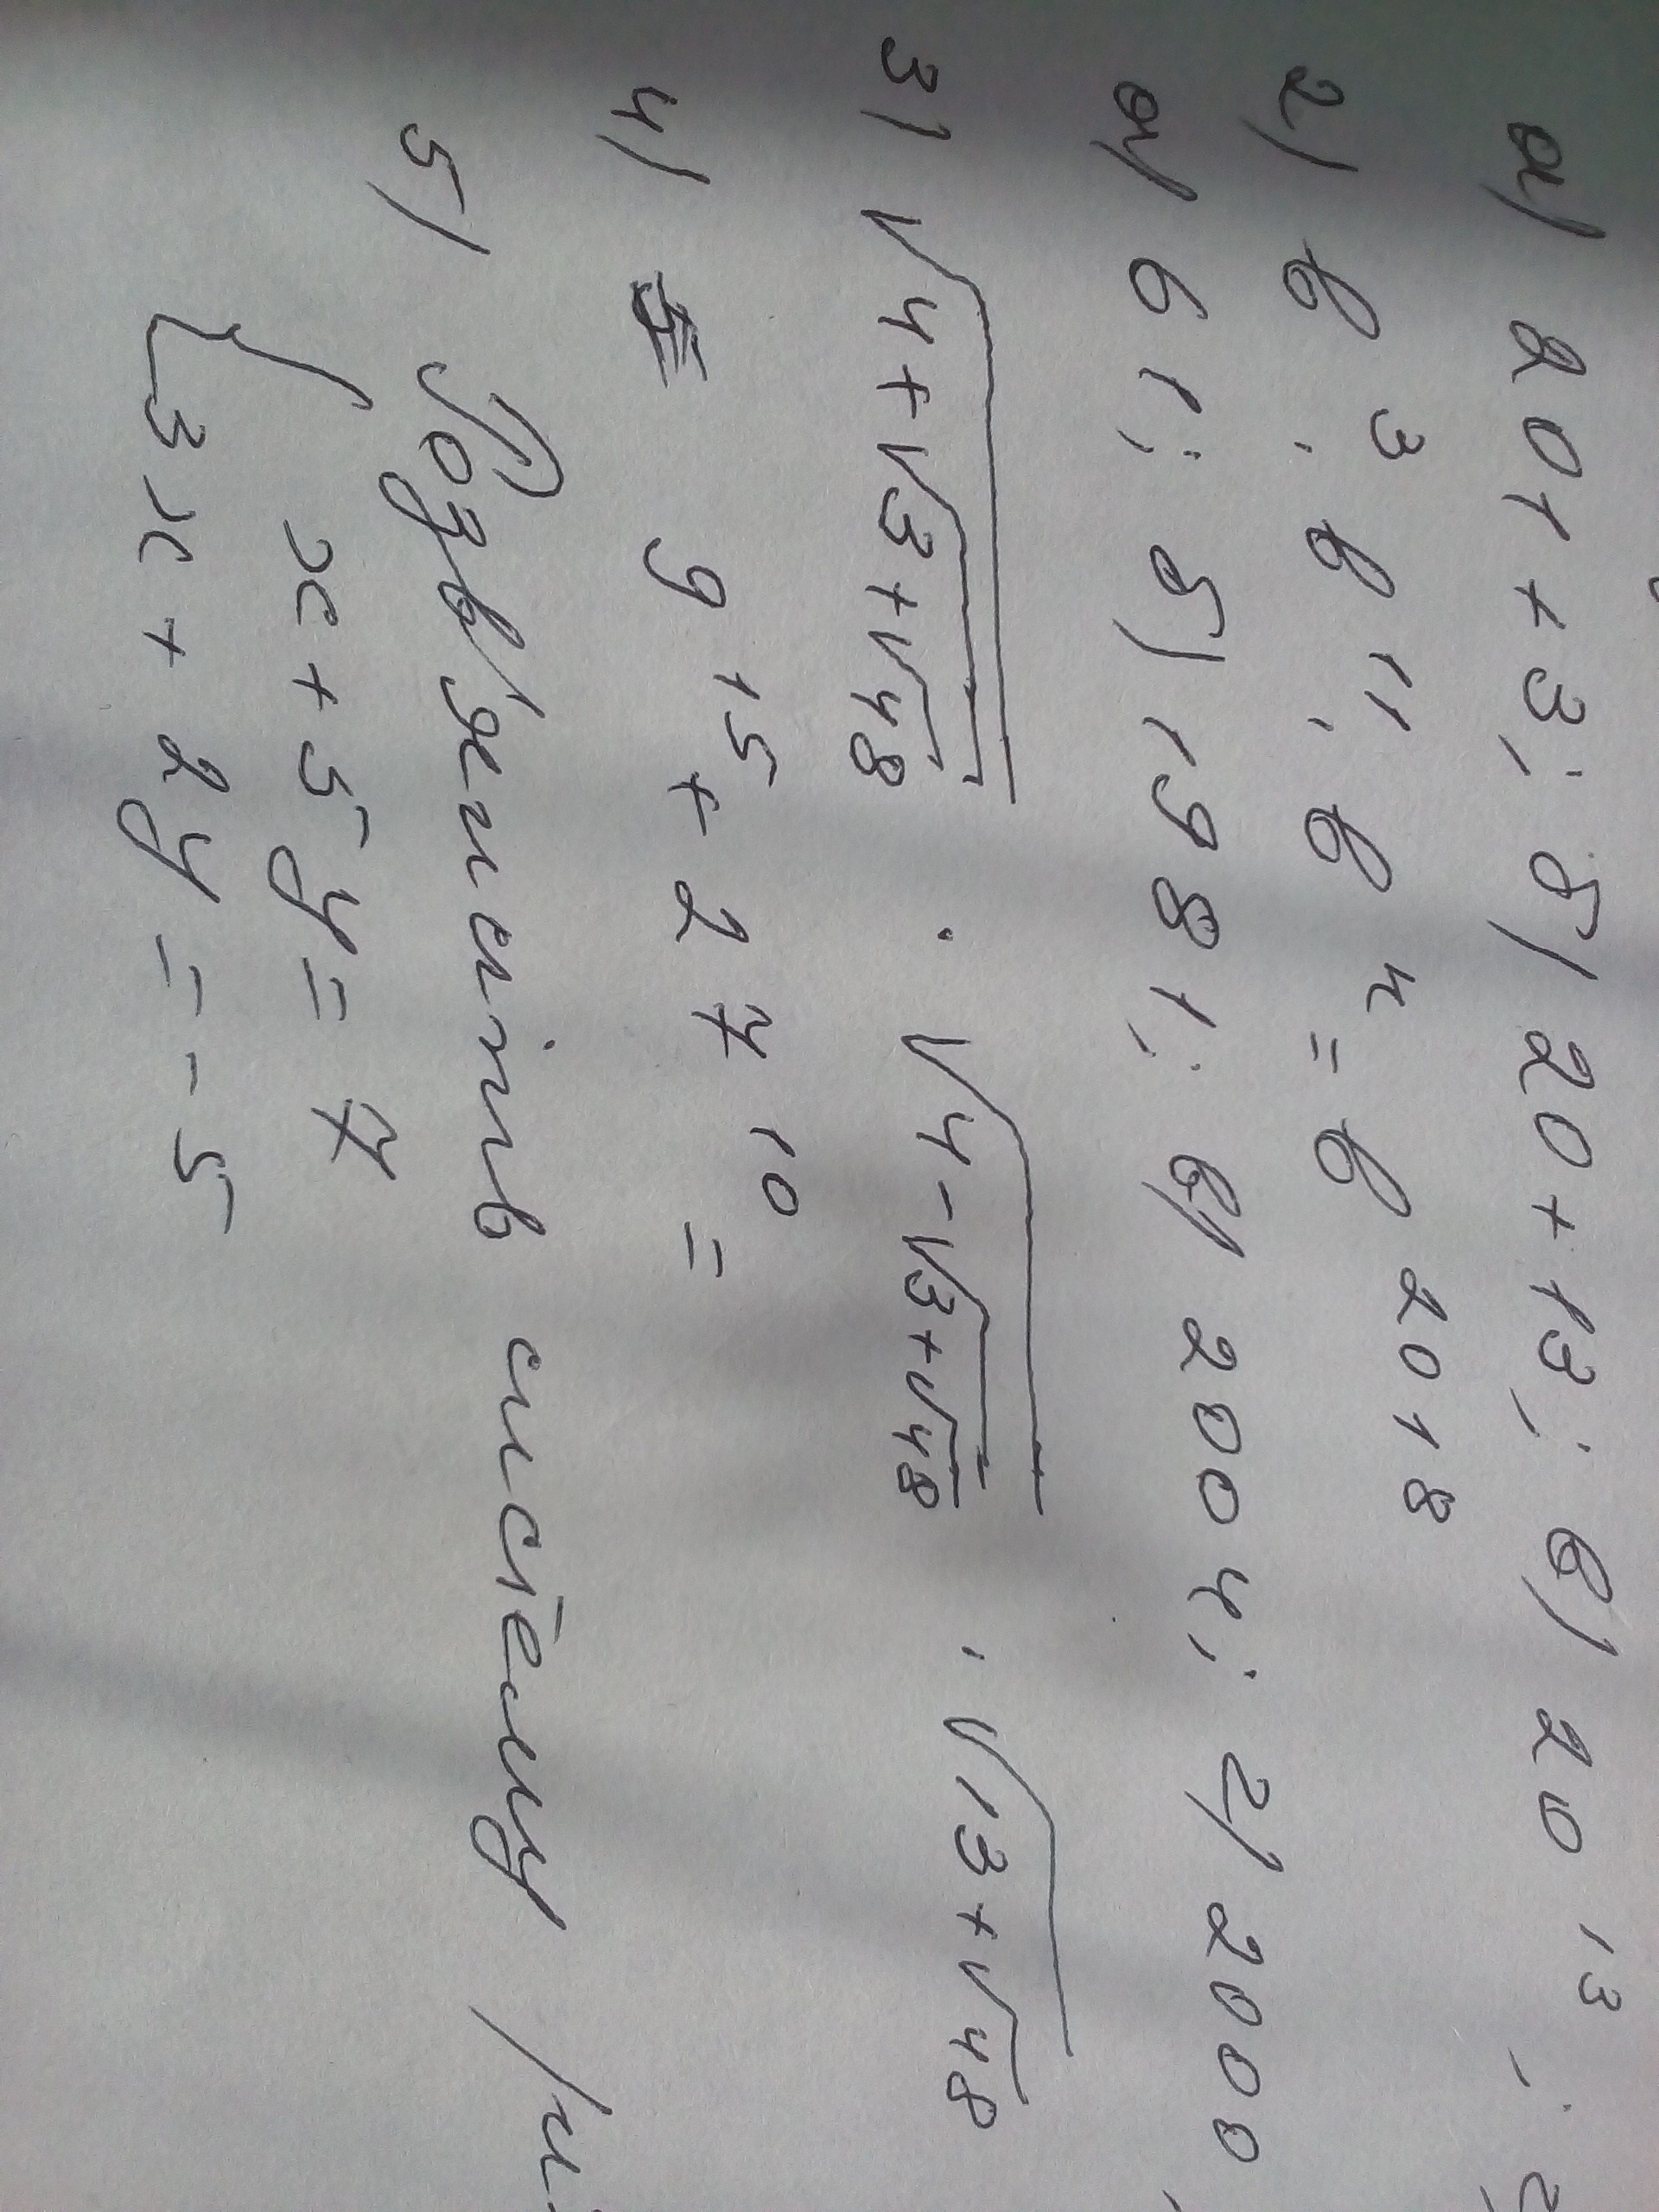 а) 201+3; б) 20+13; в) 20¹³;
2) в³·в¹¹·вˣ=в²⁰¹⁸
а) 61; б) 1981; в) 2004; г) 2000
3) √(4+√(3+√48)) · √(4-√(3+√48)) · √(13+√48)
4) 9¹⁵+27¹⁰=
5) Розв'яжить систему
x+5y=7
{3x+2y=-5